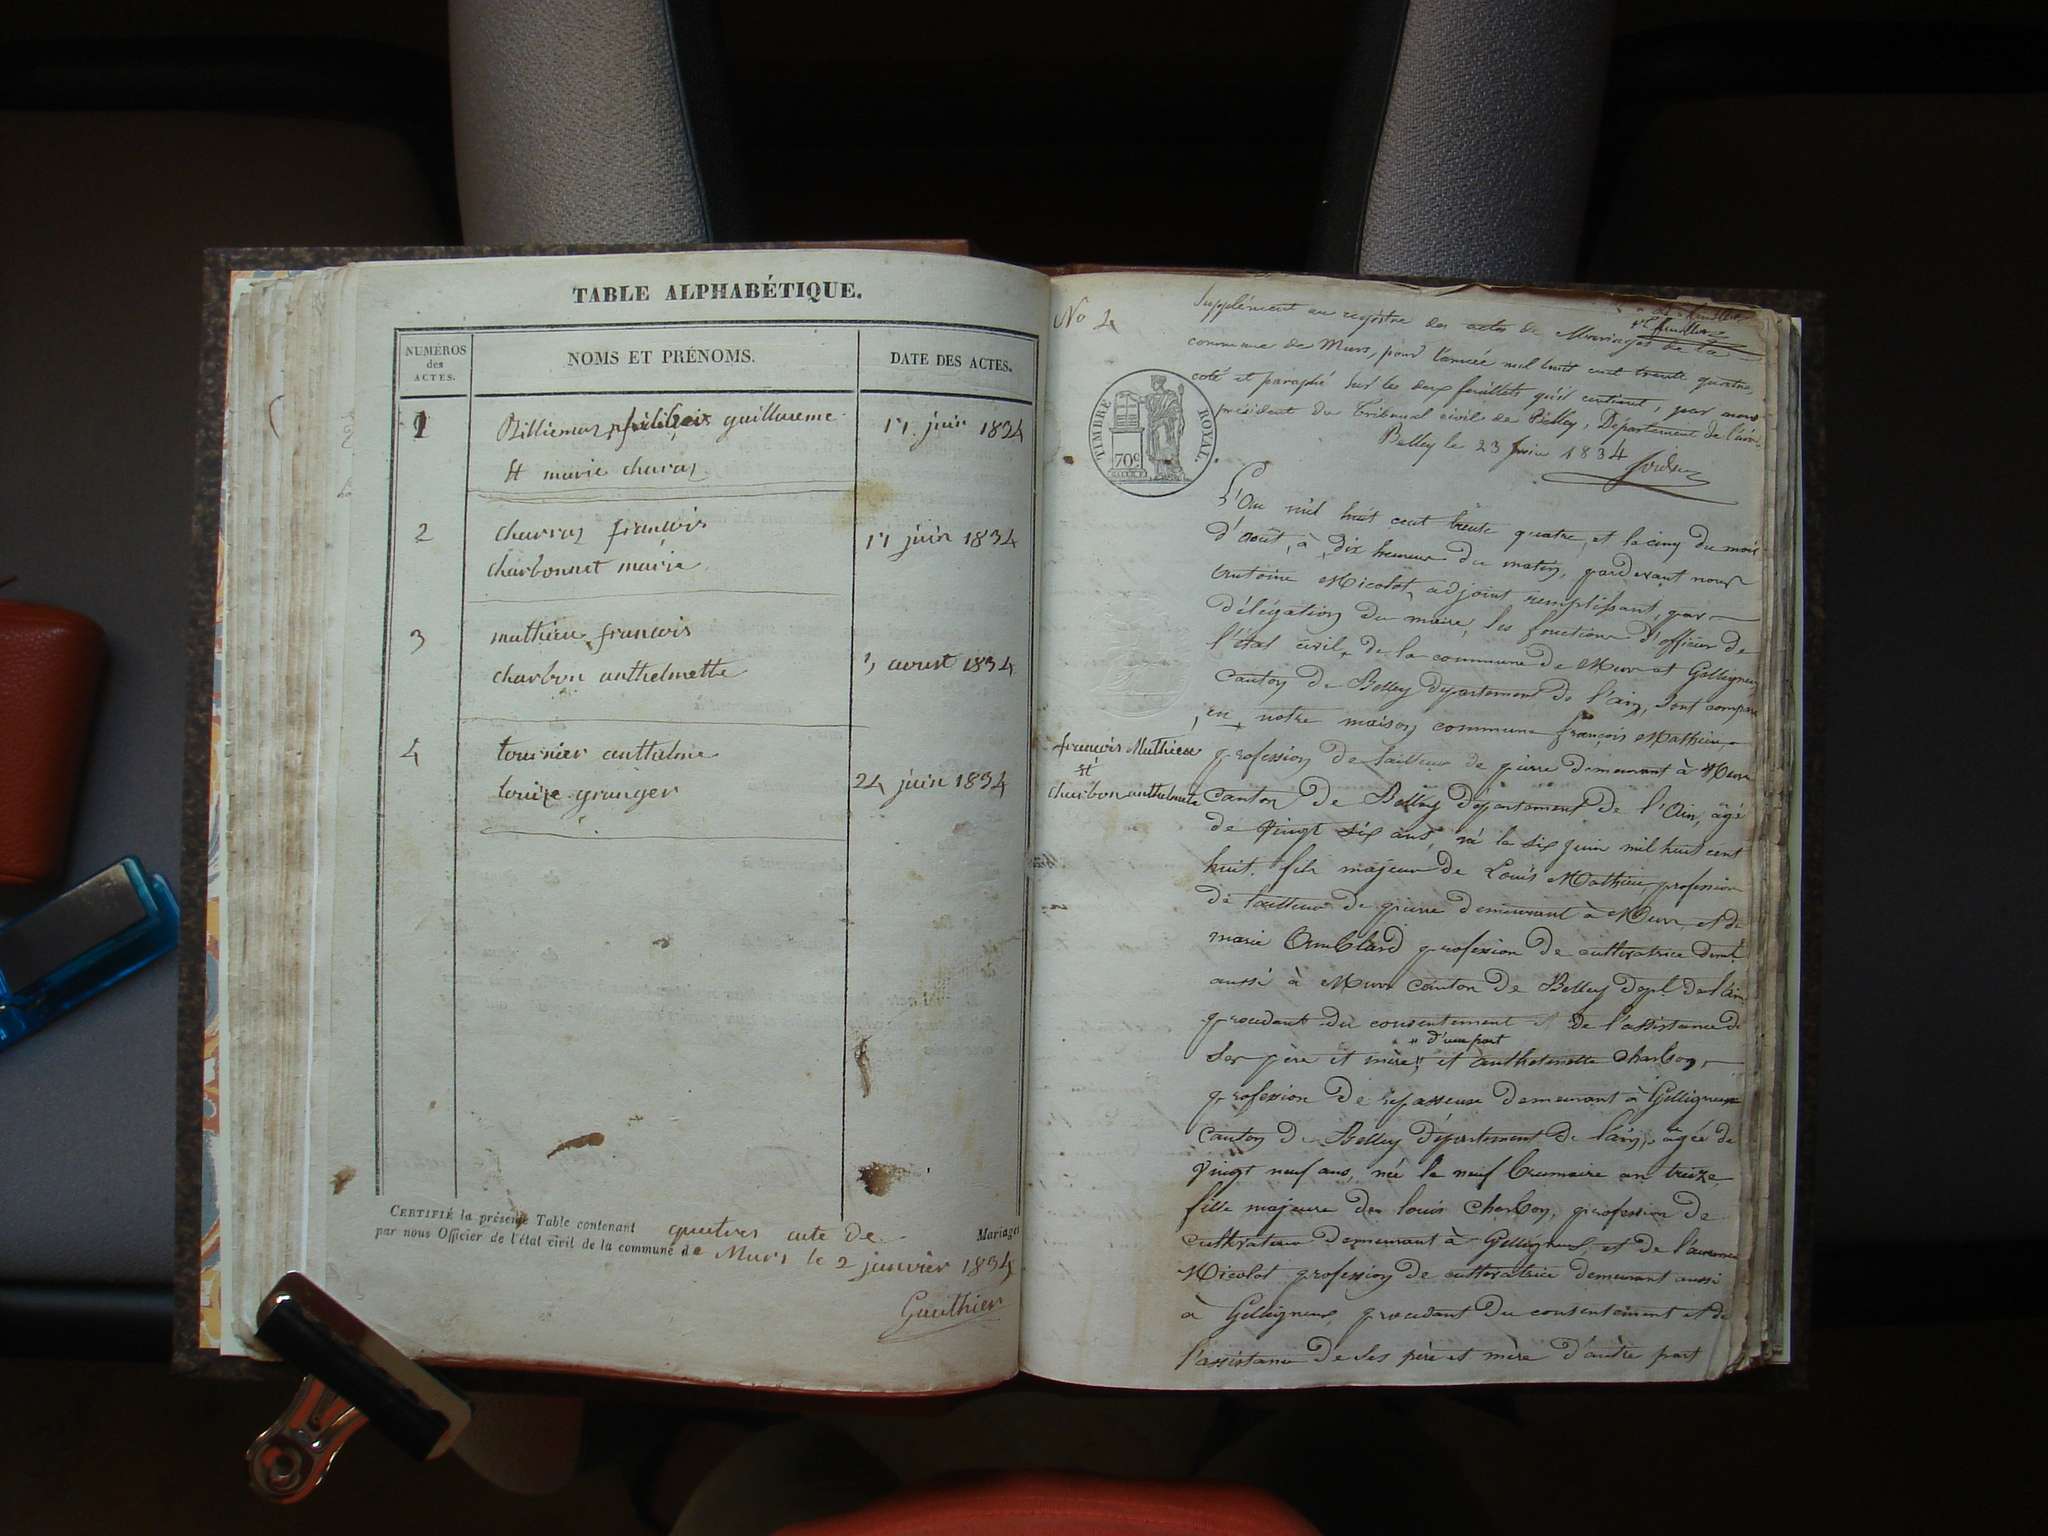 TABLE ALPHABÉTIQUE.
NUMÉROS
des
ACTES.
NOMS ET PRÉNOMS.
DATE DES ACTES.
1
Billiemaz guillaume
11 juin 1834
et marie charaz
2
charraz françois
11 juin 1834
charbonnet marie
3
mathieu françois
charbon anthelmette
5 aoust 1834
4
tournier anthelme
24 juin 1834
louise granger
CERTIFIÉ la présente Table contenant quatres acte de Mariages
par nous Officier de l'état civil de la commune de Murs le 2 janvier 1834
Gauthier
No 1
Supplément au registre des actes de Mariages de la
commune de Murs, pour l'année mil huit cent trente quatre,
coté et paraphé sur les deux feuillets qu'il contient, par nous
président du Tribunal civil de Belley, Département de l'ain
Belley le 23 Juin 1834
TIMBRE ROYAL.
70c
L'an mil huit cent trente quatre, et le cinq du mois
d'août, à dix heures du matin, pardevant nous
Antoine Nicolot, adjoint remplissant, par
délégation du maire, les fonctions d'officier de
l'état civil, de la commune de Murs et Gelligneux
canton de Belley département de l'ain, sont comparu
en notre maison commune françois Mathieu
françois Mathieu
et
charbon anthelmete
profession de tailleur de pierre demeurant à Murs
canton de Belley département de l'Ain, âgé
de vingt six ans, né le six juin mil huit cent
huit, fils majeur de Louis Mathieu, profession
de tailleur de pierre demeurant à Murs, et de
marie Amblard profession de cultivatrice demt
aussi à Murs canton de Belley dept. de l'ain
procédant du consentement et de l'assistance de
" d'une part
ses père et mère; " et anthelmette Charbon,
profession de repasseuse demeurant à Gelligneux
canton de Belley département de l'ain, âgée de
vingt neuf ans, née le neuf brumaire an treize,
fille majeure de louis Charbon, profession de
cultivateur demeurant à Gelligneux, et de
Nicolot profession de cultivatrice demeurant aussi
à Gelligneux, procédant du consentement et de
l'assistance de ses père et mère d'autre part